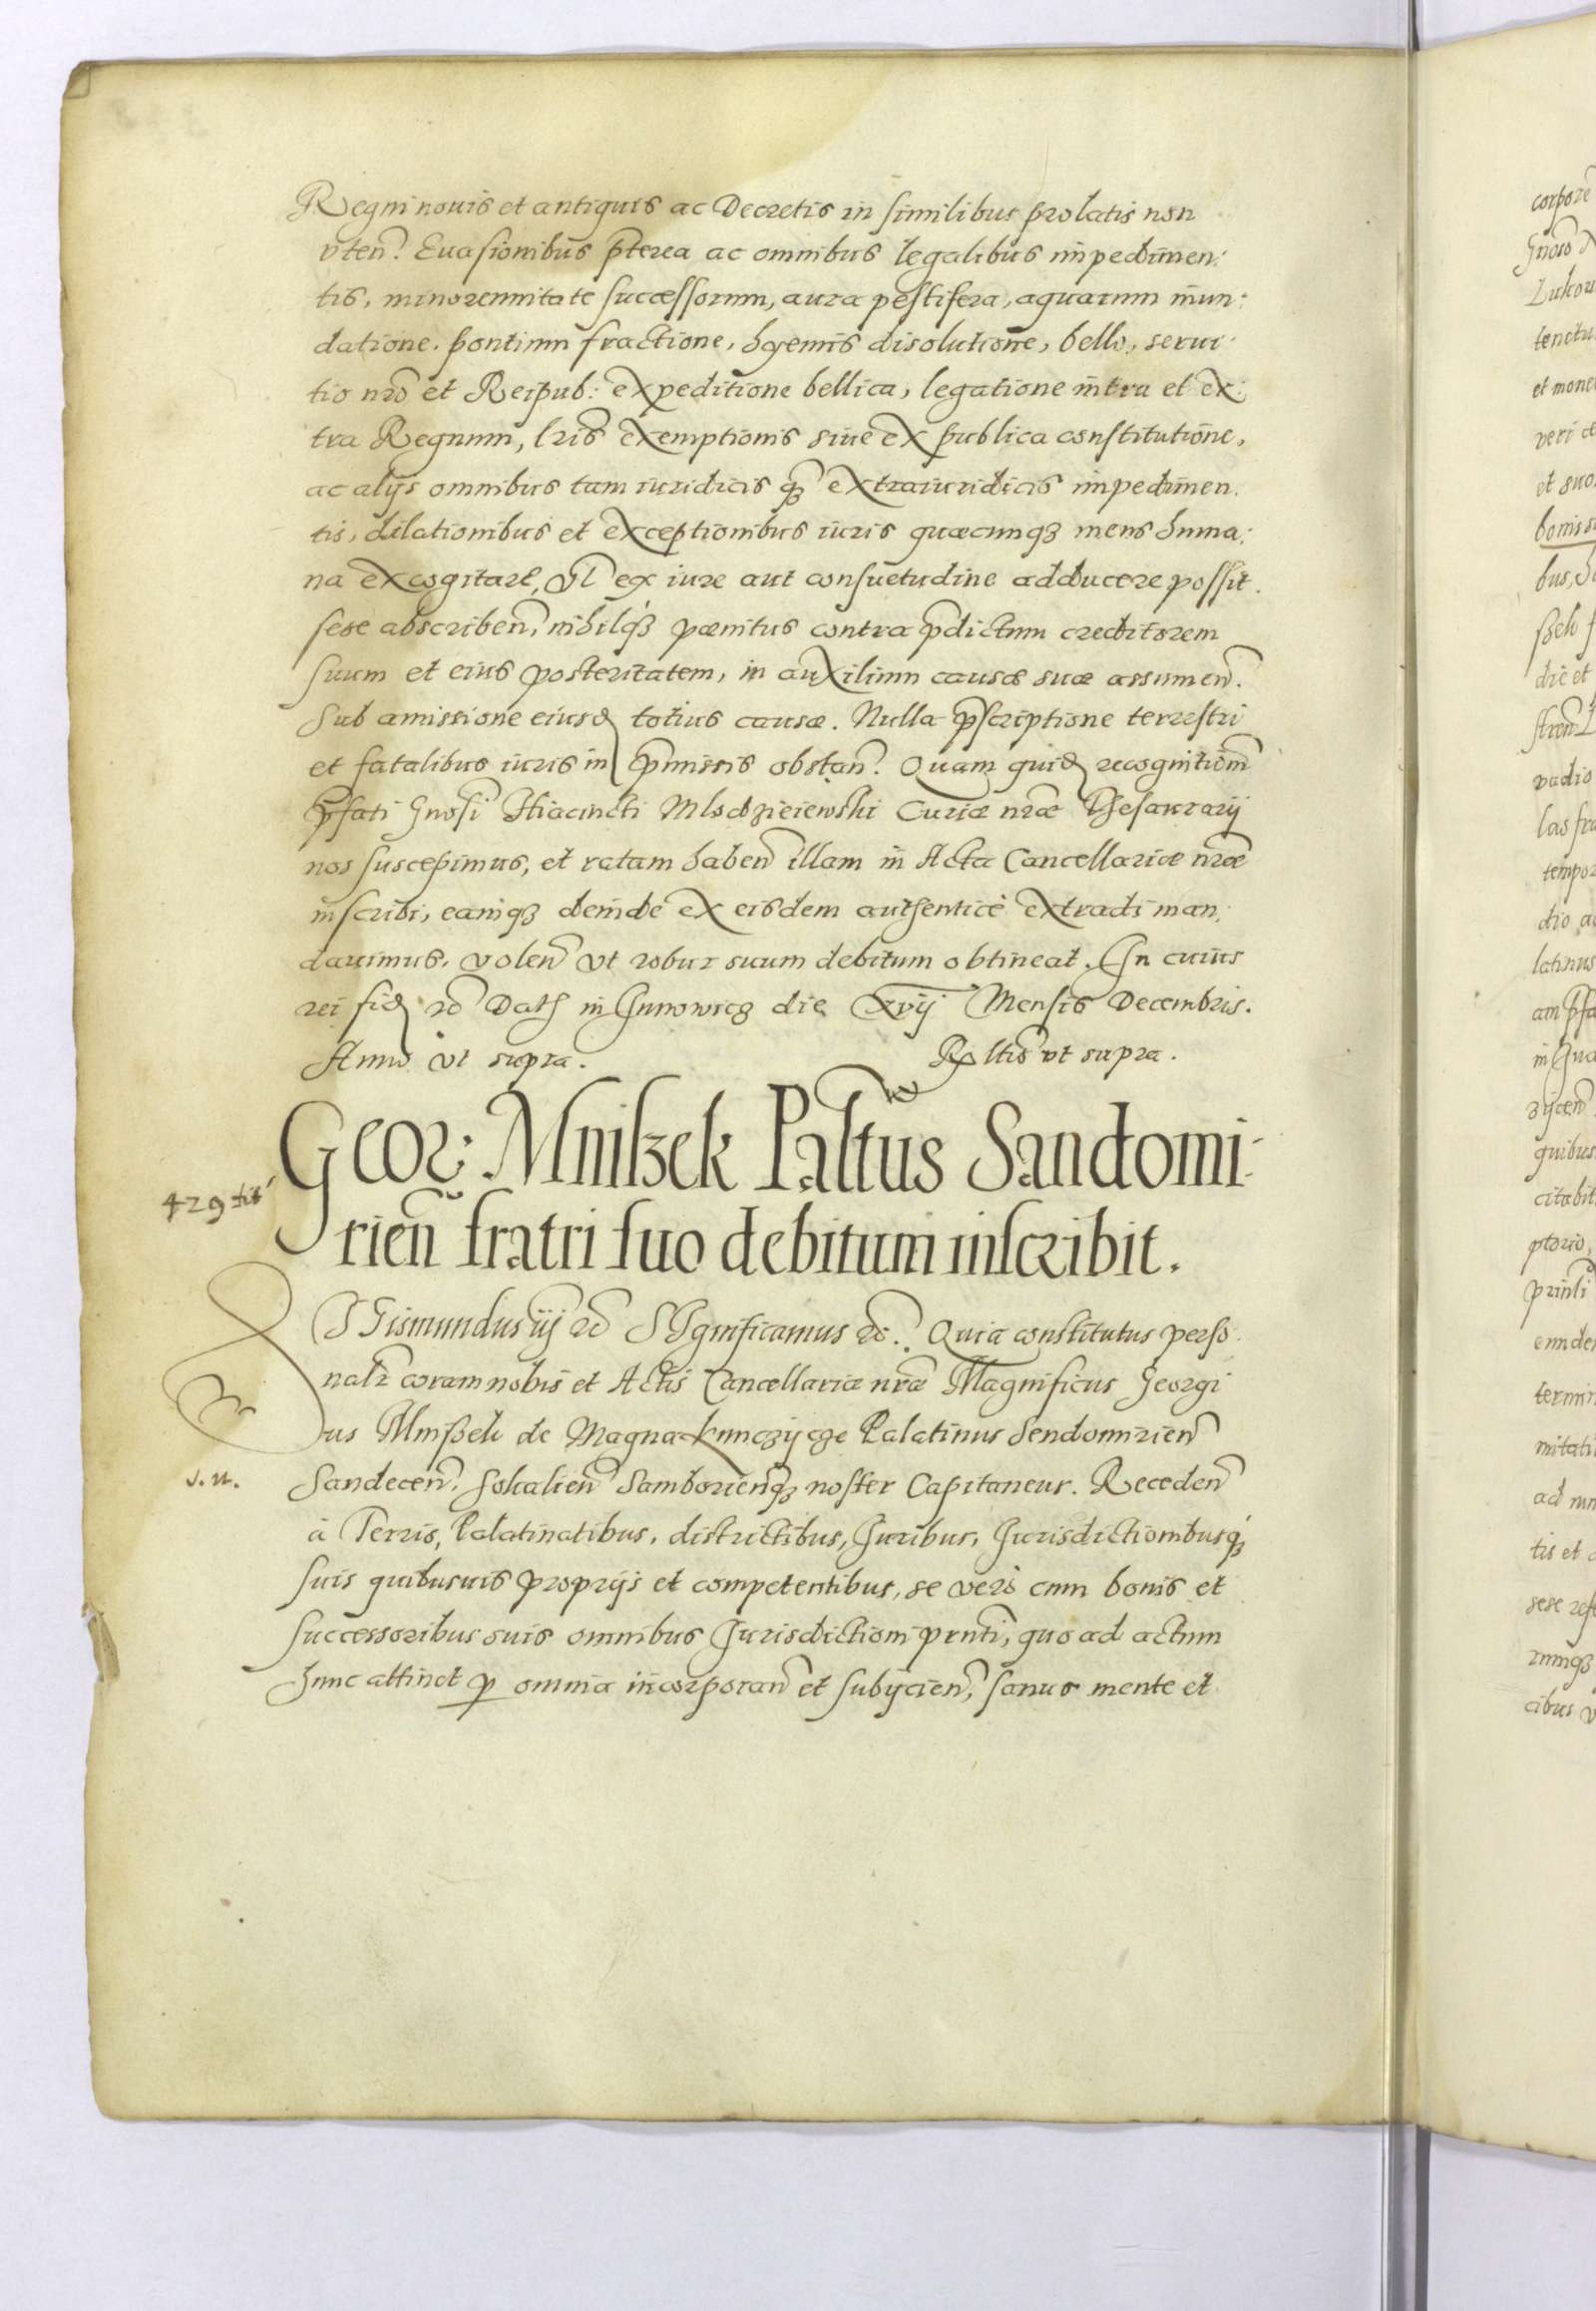 Regni nouis et antiquis ac Decretis in similibus prolatis non
vten. Euasionibus pterea ac omnibus legalibus impedimen:
tis, minorennitate successorum, aura pestifera, aquarum inun:
datione. pontium fractione, hyemis disolutione, bello, serui:
tio nro et Reipub: expeditione bellica, legatione intra et ex:
tra Regnum, lris exemptionis siue ex publica constitutione,
ac alijs omnibus tam iuridicis q3 extraiuridicis impedimen.
tis, dilationibus et exceptionibus iuris quæcunq3 mens huma:
na excogitare, vl ex iure aut consuetudine adducere possit.
sese abscriben, nihilq3 pænitus contra pdictum creditorem
suum et eius posteritatem, in auxilium causæ suæ assumen.
Sub amissione eiusd totius causæ. Nulla pscriptione terrestri
et fatalibus iuris in pmissis obstan. Quam quid recognitiom
pfati Gnosi Hiacincti Mlodzieiewski Curiæ nræ Thesaurarij
nos suscepimus, et ratam haben illam in Acta Cancellariæ nræ
inscribi, eamq3 deinde ex eisdem authenticè extradi man:
dauimus. volen vt robur suum debitum obtineat. In cuius
rei fid rc Dat in Gnnowicz die xvij Mensis Decembris.
Anno vt supra. Rltio vt supra.
Geor: Mniszek Paltus Sandomi-
rien fratri suo debitum inscribit.
429
SIgismundus iij rc SIgnificamus rc. Quia constitutus perso
nalr coram nobis et Actis Cancellariæ nræ Magnificus Georgi
us Mnißek de Magna Kunczijcze Palatinus Sendomirien
J. N. Sandecen. Sokalien Samborienq3 noster Capitaneus. Receden
à Terris, Palatinatibus, districtibus, Iuribus, Iurisdictionibusq3
suis quibusuis proprijs et competentibus, se verò cum bonis et
successoribus suis omnibus Iurisdictioni prnti, quo ad actum
hunc attinet p omnia incorporan et subijcien, sanus mente et